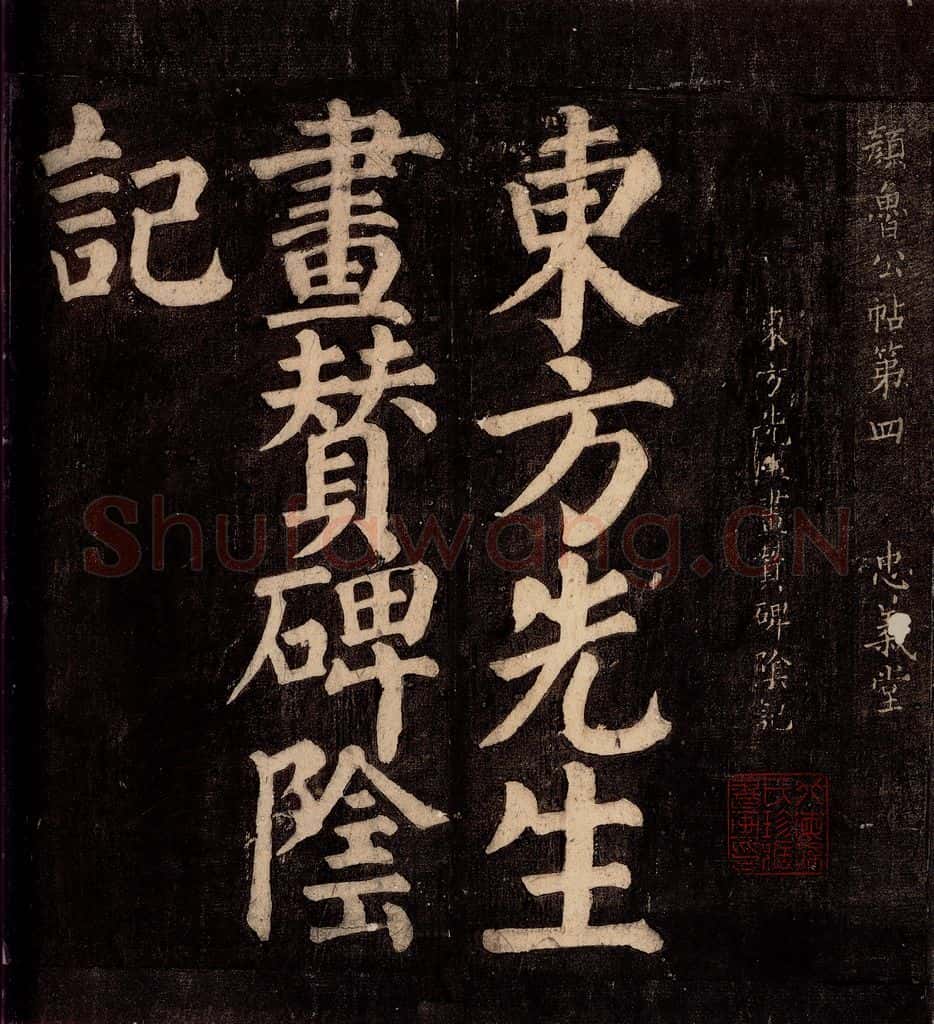 顏魯公帖第四 忠義堂
東方先生畫賛碑陰記
東方先生
畫賛碑陰
記
Shufawang.CN